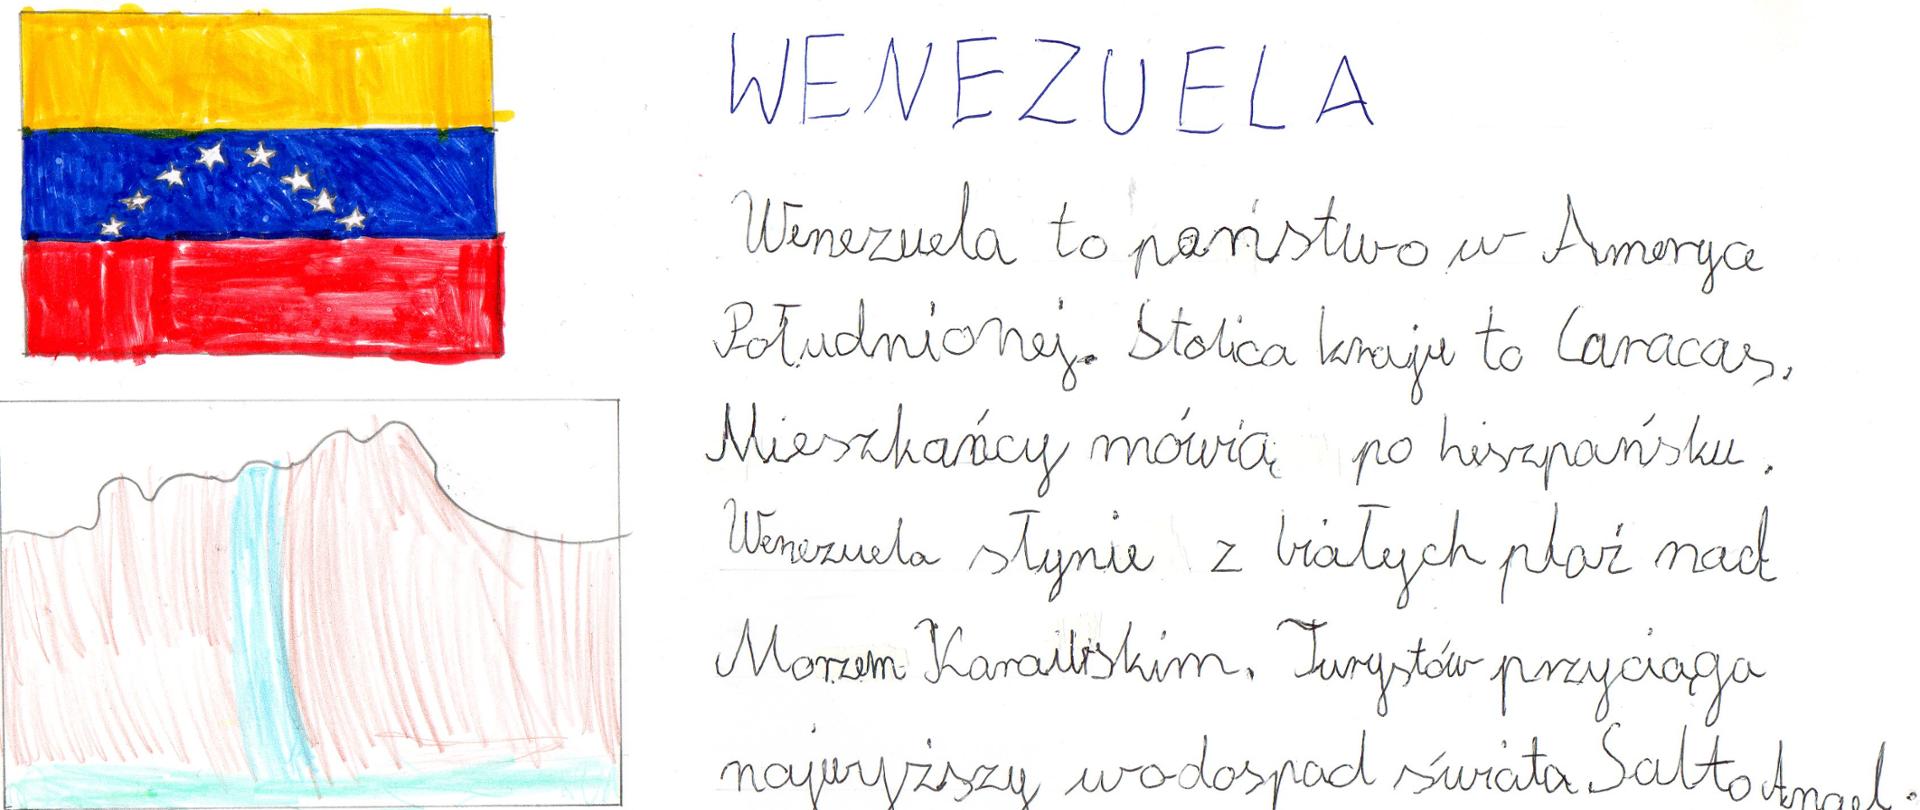 WENEZUELA
Wenezuela to państwo w Ameryce
Południowej. Stolica kraju to Caracas.
Mieszkańcy mówią po hiszpańsku.
Wenezuela słynie z białych plaż nad
Morzem Karaibskim. Turystów przyciąga
najwyższy wodospad świata Salto Angel.